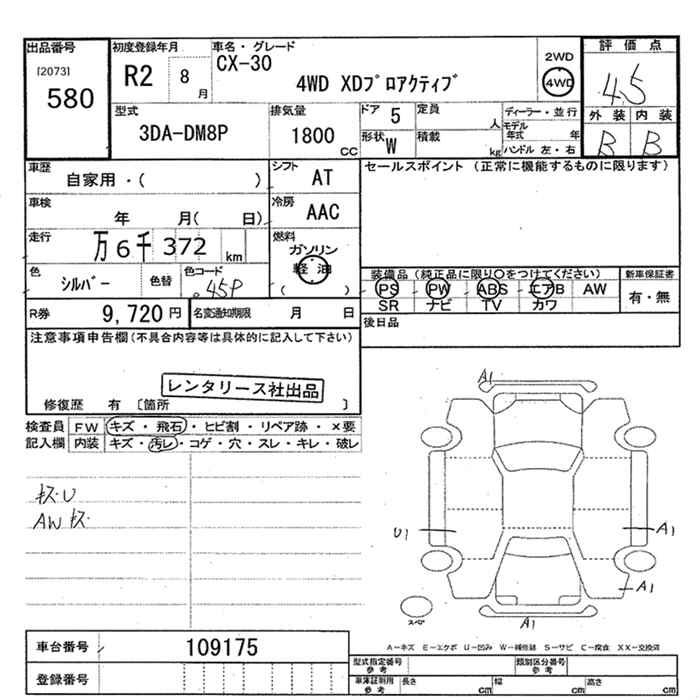 出品番号 初度登録年月 車名・グレード 評価点
[2073] R2 8月 CX-30 2WD 4.5
580 4WD XDプロアクティブ 4WD
型式 排気量 ドア 5 定員 人 ディーラー・並行 外装 内装
3DA-DM8P 1800 CC 形状 W 積載 kg モデル年式 年 B B
ハンドル 左・右
車歴 シフト AT セールスポイント (正常に機能するものに限ります)
自家用・( )
車検 年 月( 日) 冷房 AAC
走行 万6千372km 燃料 ガソリン
軽油
( )
色 シルバー 色替 色コード 45P
装備品(純正品に限り○をつけてください) 新車保証書
PS PW ABS エアB AW 有・無
SR ナビ TV カワ
R券 9,720円 名変通知期限 月 日 後日品
注意事項申告欄(不具合内容等は具体的に記入して下さい)
レンタリース社出品
修復歴 有 [箇所 ]
検査員 FW キズ・飛石・ヒビ割・リペア跡・×要
記入欄 内装 キズ・汚レ・コゲ・穴・スレ・キレ・破レ
キズU
AWキズ
A1
U1 A1
A1
A1
スペア
A−キズ E−エクボ U−凹み W−補修跡 S−サビ C−腐食 XX−交換済
車台番号 109175 型式指定番号 参考 類別区分番号 参考
登録番号 車庫証明用 参考 長さ cm 幅 cm 高さ cm